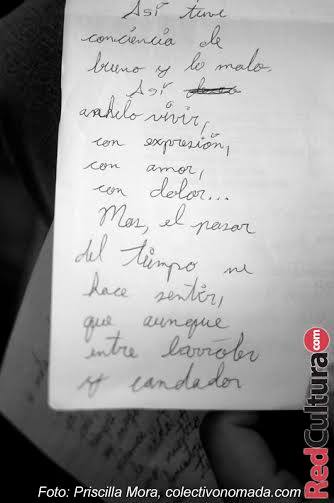 Así tuve
conciencia de
bueno y lo malo.
Así
anhelo vivir,
con expresión,
con amor,
con dolor...
Mas, el pasar
del tiempo me
hace sentir,
que aunque
entre barrotes
y candador
RedCultura.com
Foto: Priscilla Mora, colectivonomada.com